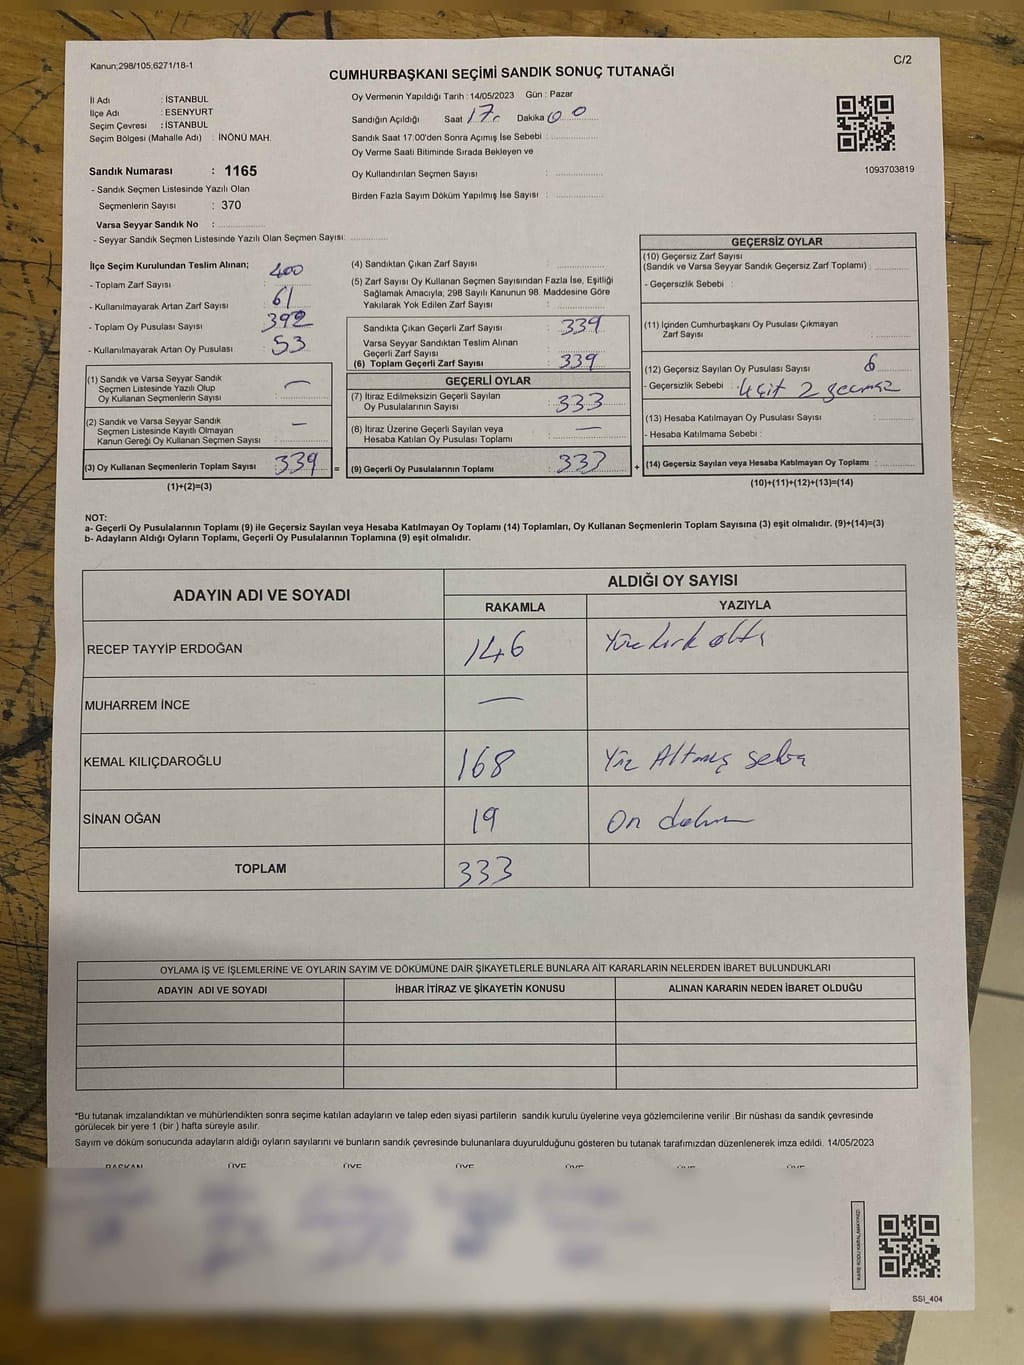 Kanun;298/105,6271/18-1
C/2
CUMHURBAŞKANI SEÇİMİ SANDIK SONUÇ TUTANAĞI
İl Adı : İSTANBUL
İlçe Adı : ESENYURT
Seçim Çevresi : İSTANBUL
Seçim Bölgesi (Mahalle Adı) : İNÖNÜ MAH.
Sandık Numarası : 1165
- Sandık Seçmen Listesinde Yazılı Olan
Seçmenlerin Sayısı : 370
Varsa Seyyar Sandık No :
- Seyyar Sandık Seçmen Listesinde Yazılı Olan Seçmen Sayısı:
Oy Vermenin Yapıldığı Tarih : 14/05/2023 Gün : Pazar
Sandığın Açıldığı Saat 17. Dakika 00
Sandık Saat 17:00'den Sonra Açımış İse Sebebi :
Oy Verme Saati Bitiminde Sırada Bekleyen ve
Oy Kullandırılan Seçmen Sayısı :
Birden Fazla Sayım Döküm Yapılmış İse Sayısı :
1093703819
İlçe Seçim Kurulundan Teslim Alınan;
- Toplam Zarf Sayısı : 400
- Kullanılmayarak Artan Zarf Sayısı : 61
- Toplam Oy Pusulası Sayısı : 392
- Kullanılmayarak Artan Oy Pusulası : 53
(1) Sandık ve Varsa Seyyar Sandık
Seçmen Listesinde Yazılı Olup
Oy Kullanan Seçmenlerin Sayısı : —
(2) Sandık ve Varsa Seyyar Sandık
Seçmen Listesinde Kayıtlı Olmayan
Kanun Gereği Oy Kullanan Seçmen Sayısı : —
(3) Oy Kullanan Seçmenlerin Toplam Sayısı 339 =
(1)+(2)=(3)
(4) Sandıktan Çıkan Zarf Sayısı :
(5) Zarf Sayısı Oy Kullanan Seçmen Sayısından Fazla İse, Eşitliği
Sağlamak Amacıyla; 298 Sayılı Kanunun 98. Maddesine Göre
Yakılarak Yok Edilen Zarf Sayısı :
Sandıkta Çıkan Geçerli Zarf Sayısı : 339
Varsa Seyyar Sandıktan Teslim Alınan
Geçerli Zarf Sayısı :
(6) Toplam Geçerli Zarf Sayısı : 339
GEÇERLİ OYLAR
(7) İtiraz Edilmeksizin Geçerli Sayılan
Oy Pusulalarının Sayısı : 333
(8) İtiraz Üzerine Geçerli Sayılan veya
Hesaba Katılan Oy Pusulası Toplamı : —
(9) Geçerli Oy Pusulalarının Toplamı : 333 +
GEÇERSİZ OYLAR
(10) Geçersiz Zarf Sayısı
(Sandık ve Varsa Seyyar Sandık Geçersiz Zarf Toplamı) :
- Geçersizlik Sebebi :
(11) İçinden Cumhurbaşkanı Oy Pusulası Çıkmayan
Zarf Sayısı :
(12) Geçersiz Sayılan Oy Pusulası Sayısı : 6
- Geçersizlik Sebebi : 2
(13) Hesaba Katılmayan Oy Pusulası Sayısı :
- Hesaba Katılmama Sebebi :
(14) Geçersiz Sayılan veya Hesaba Katılmayan Oy Toplamı :
(10)+(11)+(12)+(13)=(14)
NOT:
a- Geçerli Oy Pusulalarının Toplamı (9) ile Geçersiz Sayılan veya Hesaba Katılmayan Oy Toplamı (14) Toplamları, Oy Kullanan Seçmenlerin Toplam Sayısına (3) eşit olmalıdır. (9)+(14)=(3)
b- Adayların Aldığı Oyların Toplamı, Geçerli Oy Pusulalarının Toplamına (9) eşit olmalıdır.
ADAYIN ADI VE SOYADI
ALDIĞI OY SAYISI
RAKAMLA YAZIYLA
RECEP TAYYİP ERDOĞAN 146 Yüz kırk altı
MUHARREM İNCE —
KEMAL KILIÇDAROĞLU 168 Yüz Altmış sekiz
SİNAN OĞAN 19 On dokuz
TOPLAM 333
OYLAMA İŞ VE İŞLEMLERİNE VE OYLARIN SAYIM VE DÖKÜMÜNE DAİR ŞİKAYETLERLE BUNLARA AİT KARARLARIN NELERDEN İBARET BULUNDUKLARI
ADAYIN ADI VE SOYADI İHBAR İTİRAZ VE ŞİKAYETİN KONUSU ALINAN KARARIN NEDEN İBARET OLDUĞU
*Bu tutanak imzalandıktan ve mühürlendikten sonra seçime katılan adayların ve talep eden siyasi partilerin sandık kurulu üyelerine veya gözlemcilerine verilir .Bir nüshası da sandık çevresinde
görülecek bir yere 1 (bir ) hafta süreyle asılır.
Sayım ve döküm sonucunda adayların aldığı oyların sayılarını ve bunların sandık çevresinde bulunanlara duyurulduğunu gösteren bu tutanak tarafımızdan düzenlenerek imza edildi. 14/05/2023
BAŞKAN ÜYE ÜYE ÜYE ÜYE ÜYE ÜYE
KARE KODU KARALAMAYINIZ!
SSI_404